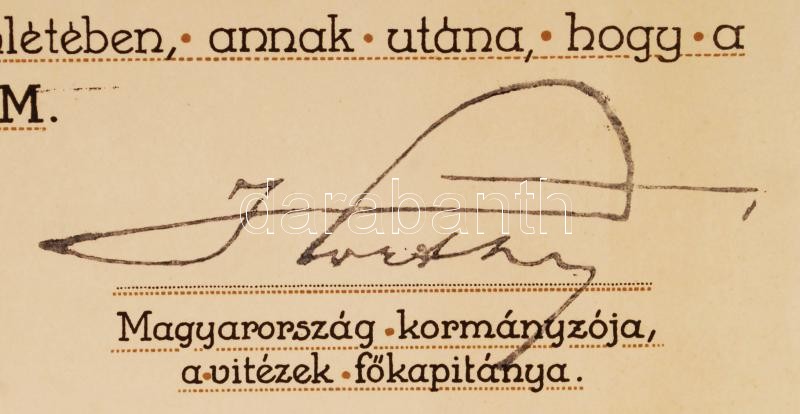 létében, · annak · utána, · hogy · a
M.
Horthy
darabanth
Magyarország · kormányzója,
a · vitézek · főkapitánya.